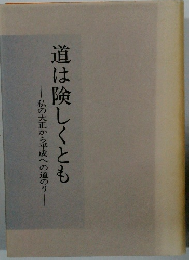 道は険しくとも
―私の大正から平成への道のり―